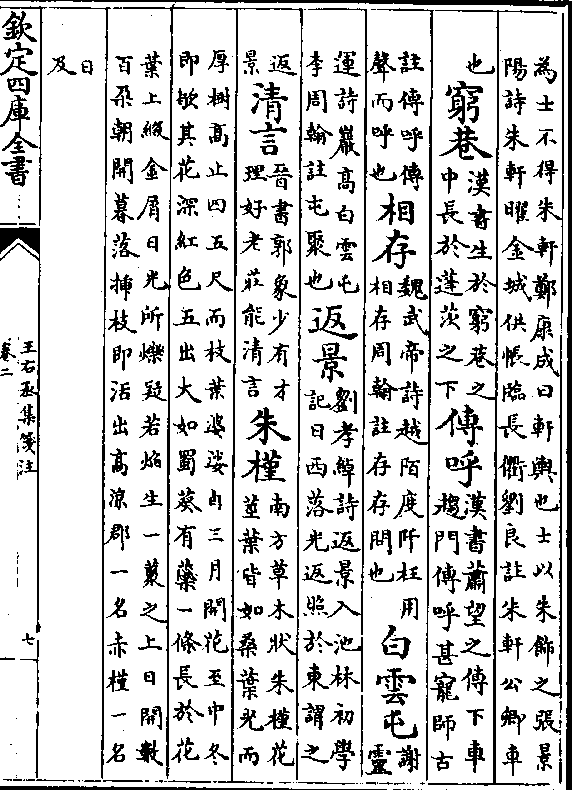 為士不得朱軒鄭康成曰軒輿也士以朱飾之張景
陽詩朱軒曜金城供帳臨長衢劉良註朱軒公卿車
也窮巷漢書生於窮巷之中長於蓬茨之下傳呼漢書蕭望之傳下車趨門傳呼甚寵師古
註傳呼傳聲而呼也相存魏武帝詩越陌度阡枉用相存周翰註存存問也白雲屯謝靈
運詩巖高白雲屯李周翰註屯聚也返景劉孝綽詩返景入池林初學記日西落光返照於東謂之
返景清言晉書郭象少有才理好老莊能清言朱槿南方草木狀朱槿花莖葉皆如桑葉光而
厚樹高止四五尺而枝葉婆娑自三月開花至中冬
即歇其花深紅色五出大如蜀葵有蘂一條長於花
葉上綴金屑日光所爍疑若焰生一叢之上日開數
百朶朝開暮落揷枝即活出高涼郡一名赤槿一名
日及
欽定四庫全書
王右丞集箋注
卷二
七